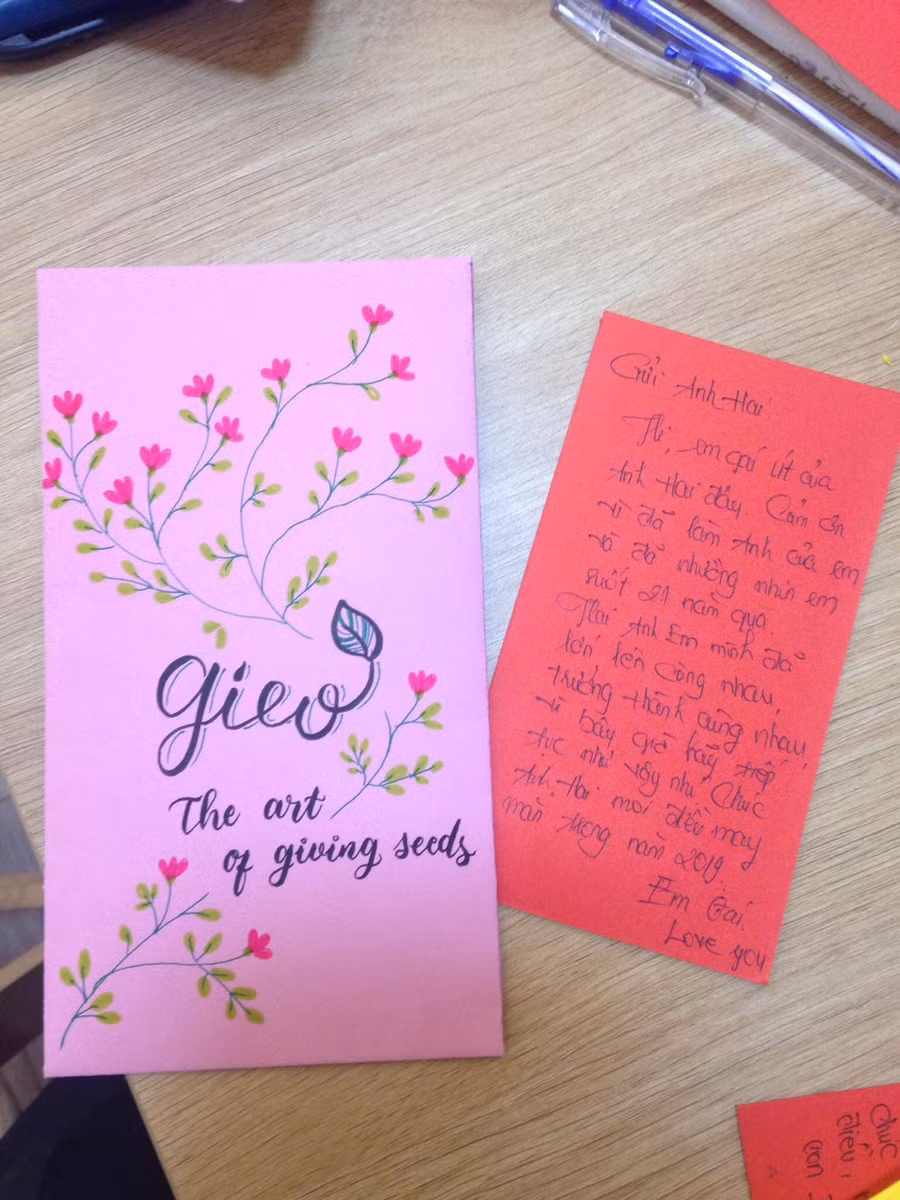 gieo
The art
of giving seeds
Gửi Anh Hai
Thi, em gái út của
Anh Hai đây. Cảm ơn
vì đã làm Anh của em
và đã nhường nhịn em
suốt 21 năm qua.
Hai Anh Em mình đã
lớn lên cùng nhau,
trưởng thành cùng nhau,
vì bây giờ hãy tiếp
tục như vậy nhé. Chúc
Anh Hai mọi điều may
mắn trong năm 2019.
Em Gái.
Love you
Chúc
điều,
con